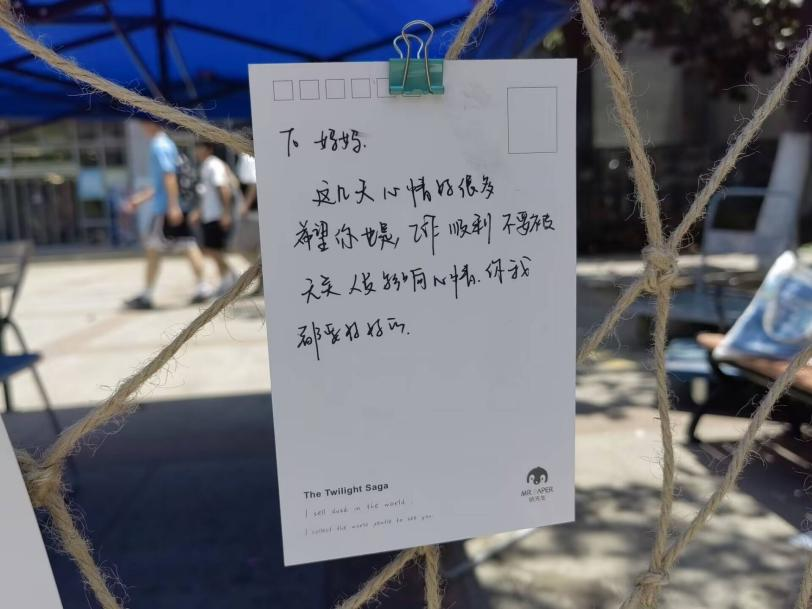 To 妈妈.
这几天心情好很多
希望你也是, 工作顺利 不要被
无关人员影响心情. 你我
都要好好的.
The Twilight Saga
I sell dusk in the world.
I collect the world gentle to see you.
MR.PAPER